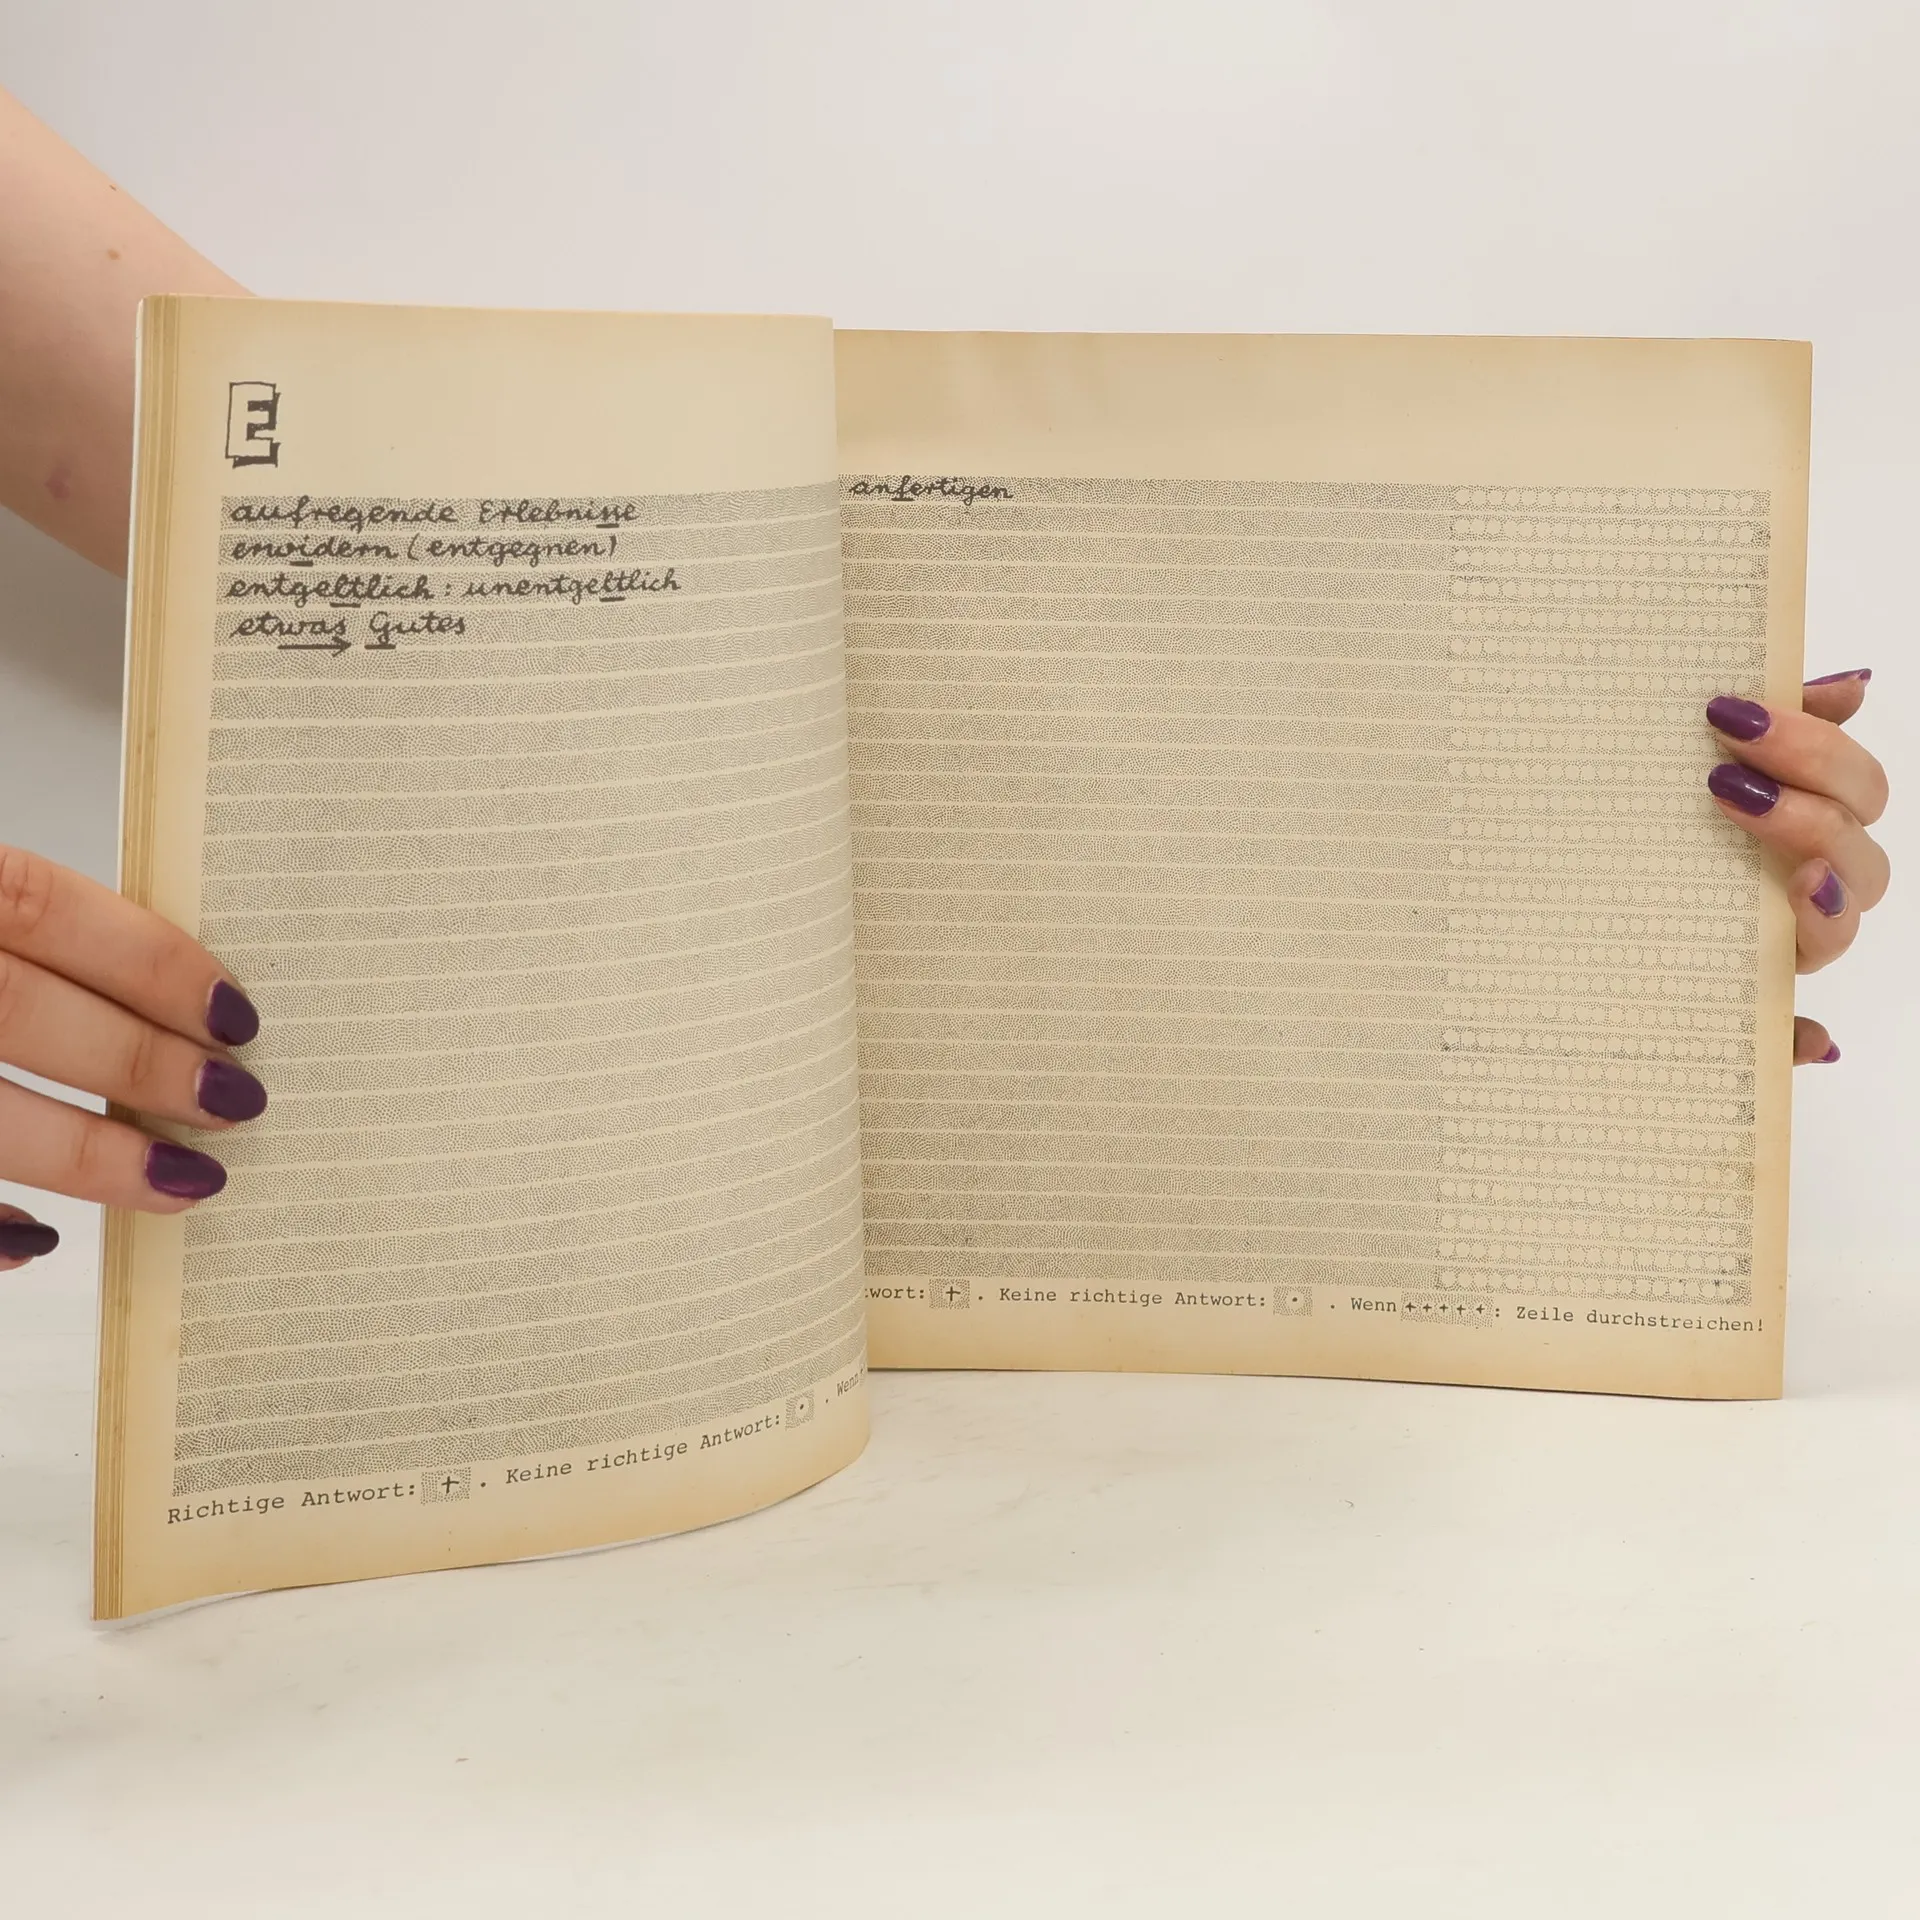 E
aufregende Erlebnisse
erwidern (entgegnen)
entgeltlich : unentgeltlich
etwas Gutes
Richtige Antwort: + . Keine richtige Antwort: • . Wenn
anfertigen
twort: + . Keine richtige Antwort: • . Wenn +++++: Zeile durchstreichen!